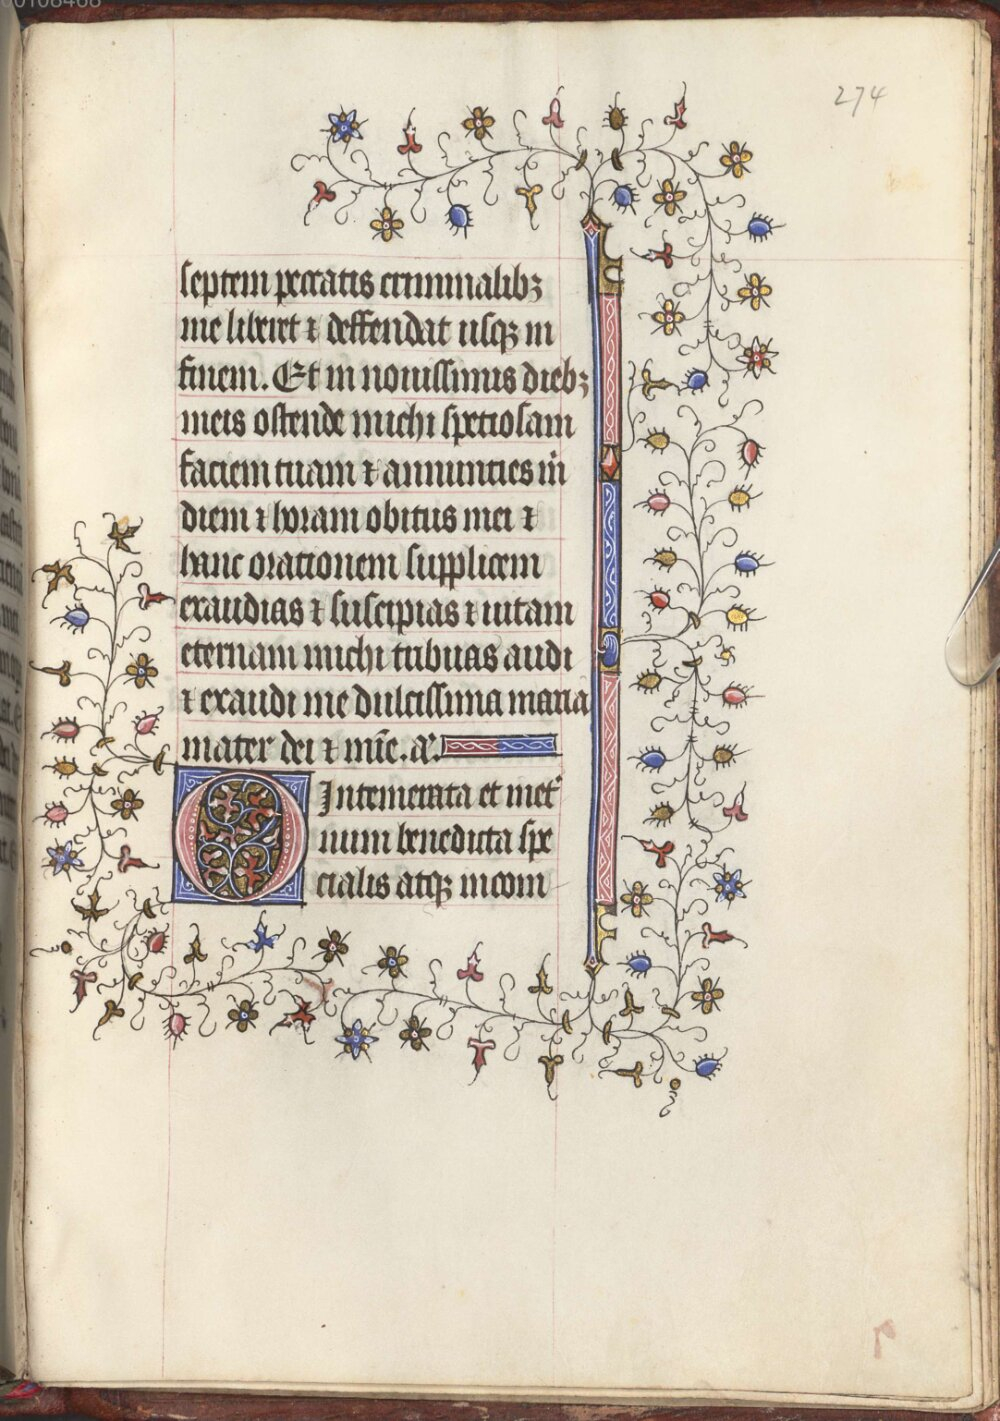 00108468
274
septem peccatis criminalibꝫ
me liberet ⁊ deffendat usqꝫ in
finem. Et in nouissimis diebꝫ
meis ostende michi spetiosam
faciem tuam ⁊ annuncies m̄
diem ⁊ horam obitus mei ⁊
hanc orationem supplicem
exaudias ⁊ suscipias ⁊ uitam
eternam michi tribuas audi
⁊ exaudi me dulcissima maria
mater dei ⁊ mīe. a.
O Intemerata et inet̾
num benedicta spe
cialis atqꝫ incom